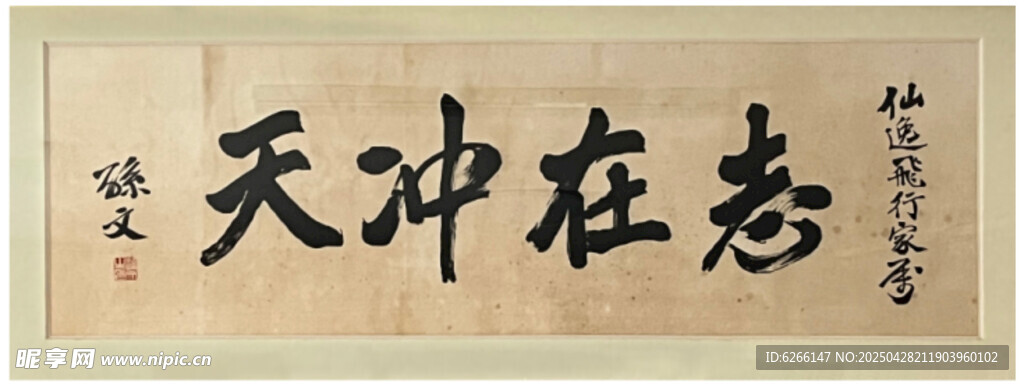 仙逸飛行家
志在冲天
孫文
昵享网 www.nipic.cn
ID:6266147 NO:20250428211903960102